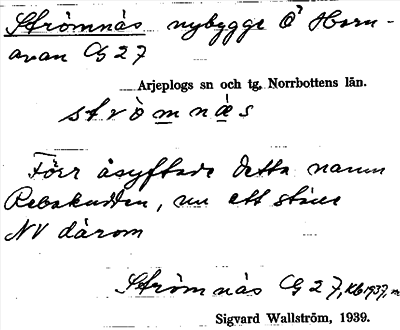 Strömnäs nybygge Ö Horn-
avan G 27
Arjeplogs sn och tg, Norrbottens län.
strò̀mnä́s
Förr åsyftade detta namn
Rebakudden, nu ett ställe
NV därom
Strömnäs G 27, Kb 1937,
Sigvard Wallström, 1939.